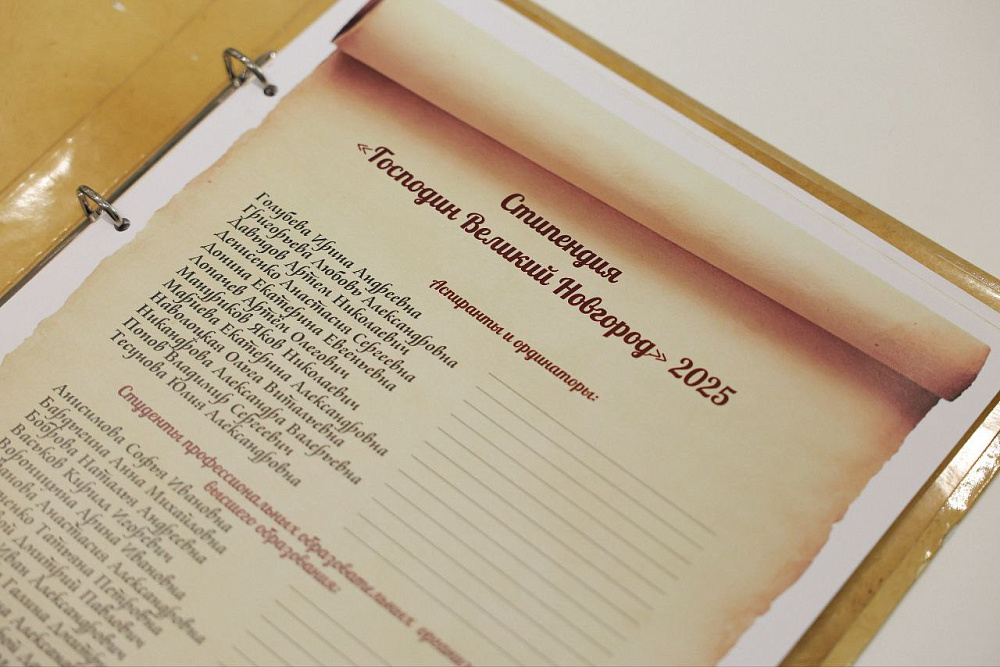 Стипендия
«Господин Великий Новгород» 2025
Аспиранты и ординаторы:
Голубева Ирина Андреевна
Григорьева Любовь Александровна
Давыдов Артем Николаевич
Денисенко Анастасия Сергеевна
Донина Екатерина Евгеньевна
Лопачев Артём Олегович
Мандриков Яков Николаевич
Маричева Екатерина Витальевна
Наволоцкая Ольга Валерьевна
Никандрова Александра Валерьевна
Попов Владимир Сергеевич
Тесунова Юлия Александровна
Студенты профессиональных образовательных
высшего образования:
Анисимова София Ивановна
Бардыгина Анна Михайловна
Боброва Наталья Андреевна
Васьков Кирилл Игоревич
Воронцева Арина Ивановна
Анастасия Александровна
Татьяна Петровна
Дмитрий Павлович
Иван Александрович